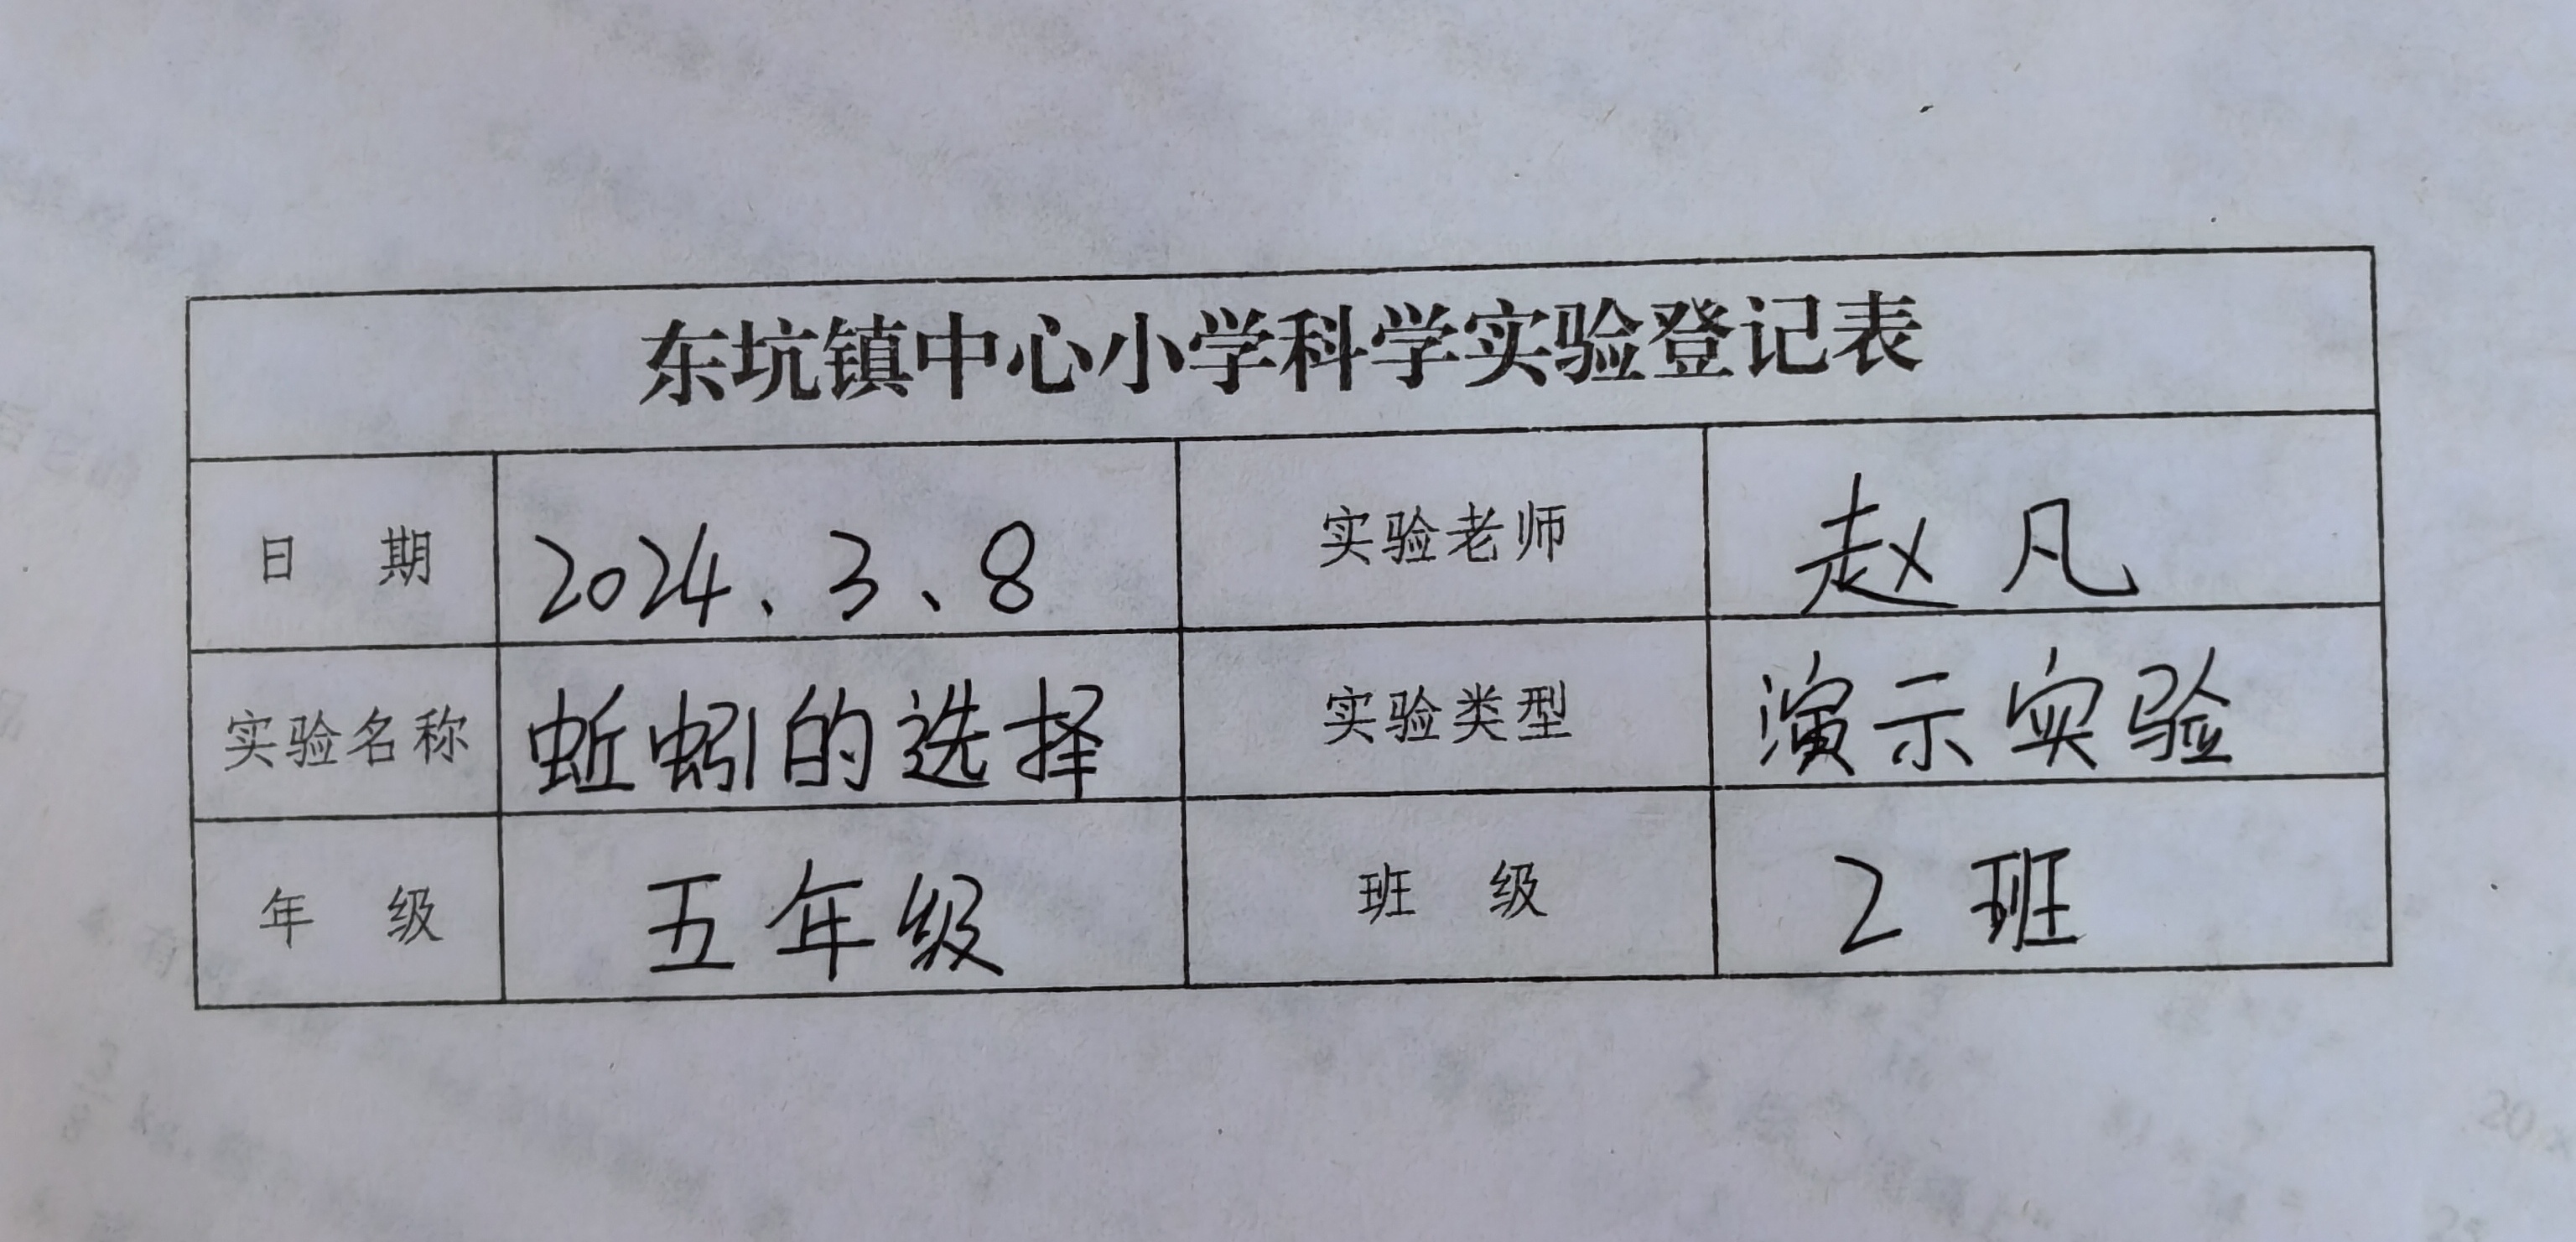 东坑镇中心小学科学实验登记表
日 期 2024、3、8 实验老师 赵凡
实验名称 蚯蚓的选择 实验类型 演示实验
年 级 五年级 班 级 2班